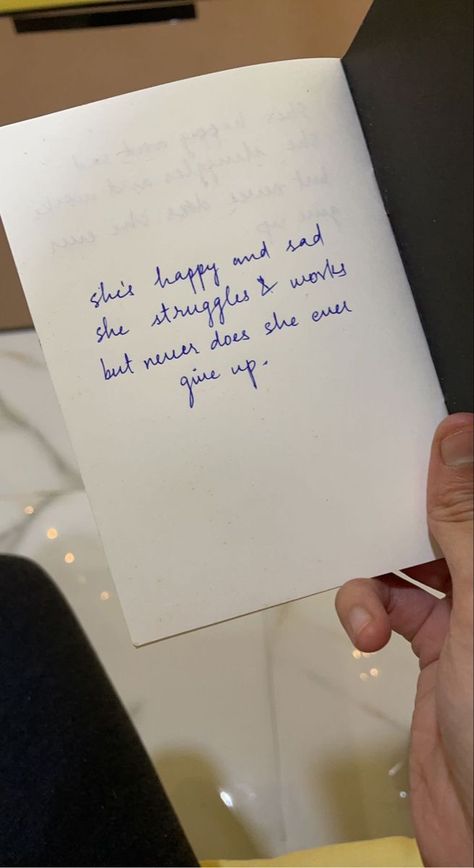 she's happy and sad
she struggles & works
but never does she ever
give up.